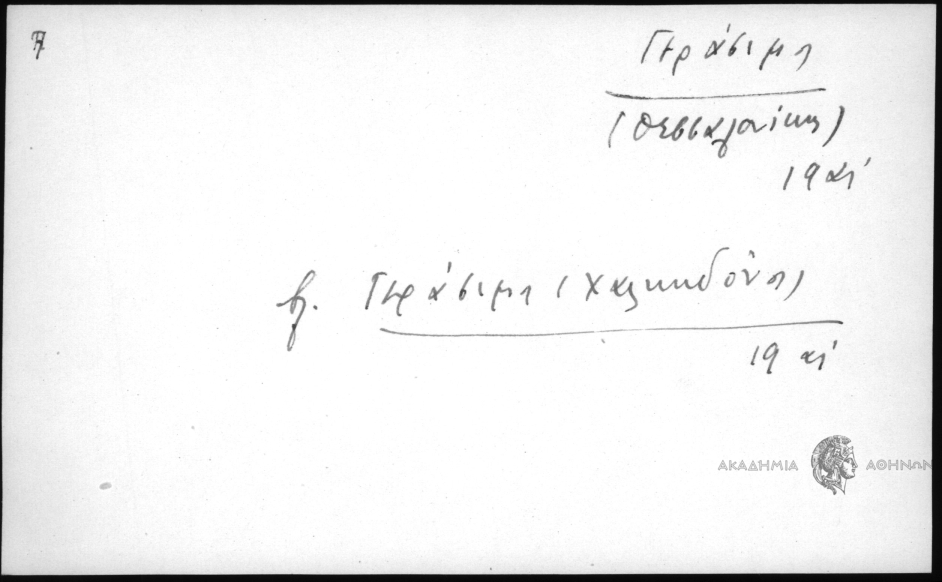 Γεράσιμος
(Θεσσαλονίκης)
19 αἰ
βλ. Γεράσιμος (Χαλκηδόνος)
19 αἰ
ΑΚΑΔΗΜΙΑ ΑΘΗΝΩΝ